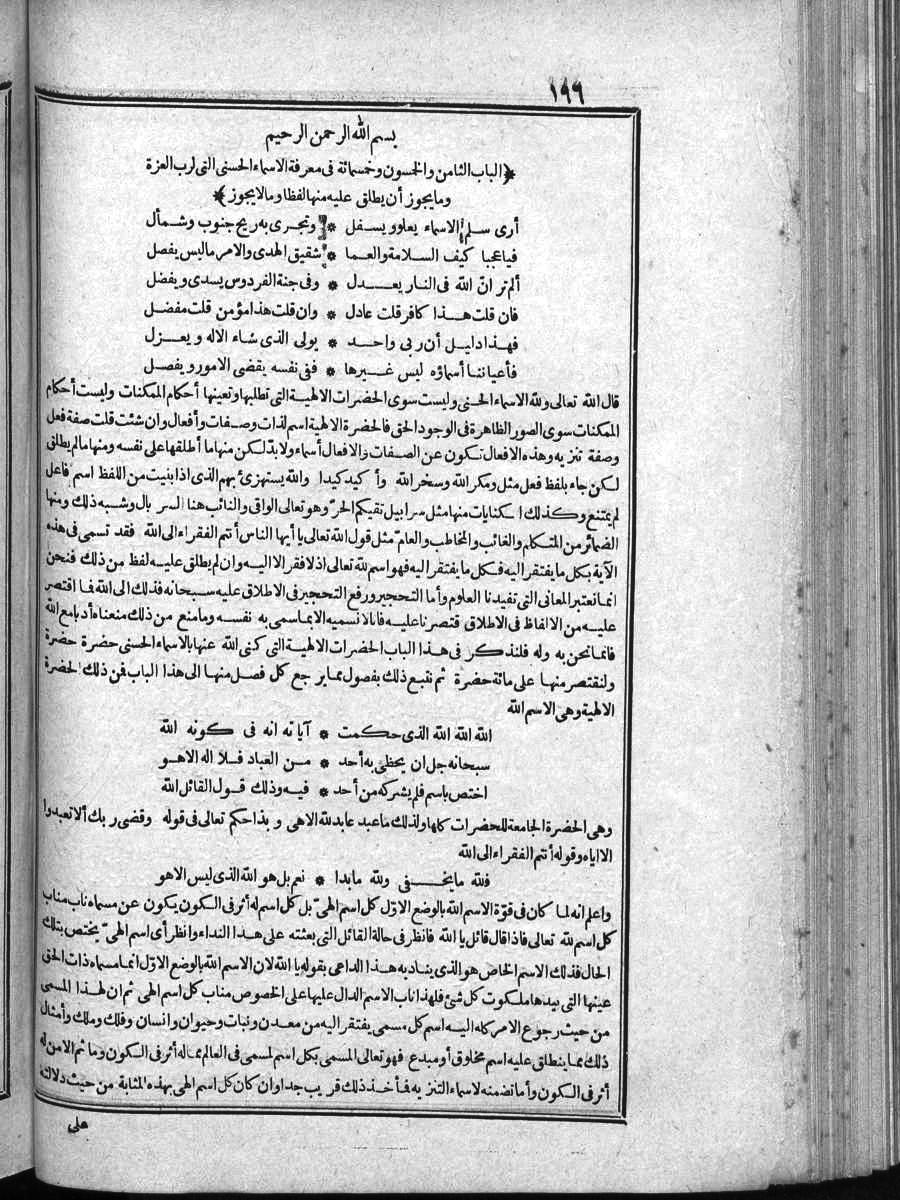 ١٩٦
بسم الله الرحمن الرحيم
﴿الباب الثامن والخمسون وخمسمائة فى معرفة الاسماء الحسنى التى لرب العزة
وما يجوز أن يطلق عليه منها لفظا وما لا يجوز﴾
أرى سلم الاسماء يعلو ويسفل * وتجرى به ريح جنوب وشمأل
فيا عجبا كيف السلامة والعما * شقيق الهدى والامر ما ليس يفصل
ألم تر انّ الله فى النار يعدل * وفى جنة الفردوس يسدى ويفضل
فان قلت هذا كافر قلت عادل * وان قلت هذا مؤمن قلت مفضل
فهذا دليل أن ربى واحد * يولى الذى شاء الاله ويعزل
فأعياننا أسماؤه ليس غيرها * ففى نفسه يقضى الامور ويفصل
قال الله تعالى ولله الاسماء الحسنى وليست سوى الحضرات الالهية التى تطلبها وتعينها أحكام الممكنات وليست أحكام
الممكنات سوى الصور الظاهرة فى الوجود الحق فالحضرة الالهية اسم لذات وصفات وأفعال وان شئت قلت صفة فعل
وصفة تنزيه وهذه الافعال تكون عن الصفات والافعال أسماء ولا بدّ لكن منها ما أطلقها على نفسه ومنها ما لم يطلق
لكن جاء بلفظ فعل مثل ومكر الله وسخر الله وأكيد كيدا والله يستهزئ بهم الذى اذا بنيت من اللفظ اسم فاعل
لم يمتنع وكذلك الكنايات منها مثل سرابيل تقيكم الحرّ وهو تعالى الواقى والنائب هنا السربال وشبه ذلك ومنها
الضمائر من المتكلم والغائب والمخاطب والعامّ مثل قول الله تعالى يا أيها الناس أنتم الفقراء الى الله فقد تسمى فى هذه
الآية بكل ما يفتقر اليه فكل ما يفتقر اليه فهو اسم لله تعالى اذ لا فقر الا اليه وان لم يطلق عليه لفظ من ذلك فنحن
انما نعتبر المعانى التى تفيدنا العلوم وأما التحجير ورفع التحجير فى الاطلاق عليه سبحانه فذلك الى الله فما اقتصر
عليه من الالفاظ فى الاطلاق قتصرنا عليه فانا لا نسميه الا بما سمى به نفسه وما منع من ذلك منعناه أدبا مع الله
فانما نحن به وله فلنذكر فى هذا الباب الحضرات الالهية التى كنى الله عنها بالاسماء الحسنى حضرة حضرة
ولنقتصر منها على مائة حضرة ثم نتبع ذلك بفصول مما يرجع كل فصل منها الى هذا الباب فمن ذلك الحضرة
الالهية وهى الاسم الله
الله الله الله الذى حكمت * آياته انه فى كونه الله
سبحانه جل ان يحظى به أحد * من العباد فلا اله الا هو
اختص باسم فلم يشركه من أحد * فيه وذلك قول القائل الله
وهى الحضرة الجامعة للحضرات كلها ولذلك ما عبد عابد لله الا هى وبذا حكم تعالى فى قوله وقضى ربك ألا تعبدوا
الا اياه وقوله أنتم الفقراء الى الله
فلله ما يخفى ولله ما بدا * نعم بل هو الله الذى ليس الا هو
واعلم انه لما كان فى قوّة الاسم الله بالوضع الاوّل كل اسم الهىّ بل كل اسم له أثر فى الكون يكون عن مسماه ناب مناب
كل اسم لله تعالى فاذا قال قائل يا الله فانظر فى حالة القائل التى بعثته على هذا النداء وانظر أى اسم الهىّ يختص بتلك
الحال فذلك الاسم الخاص هو الذى يناديه هذا الداعى بقوله يا الله لان الاسم الله بالوضع الاوّل انما مسماه ذات الحق
عينها التى بيدها ملكوت كل شئ فلهذا ناب الاسم الدال عليها على الخصوص مناب كل اسم الهى ثم ان لهذا المسمى
من حيث رجوع الامر كله اليه اسم كل مسمى يفتقر اليه من معدن ونبات وحيوان وانسان وفلك وملك وأمثال
ذلك مما ينطلق عليه اسم مخلوق أو مبدع فهو تعالى المسمى بكل اسم لمسمى فى العالم مما له أثر فى الكون وما ثم الا من له
أثر فى الكون وأما تضمنه لاسماء التنزيه فمأخذ ذلك قريب جدا وان كان كل اسم الهى بهذه المثابة من حيث دلالته
على